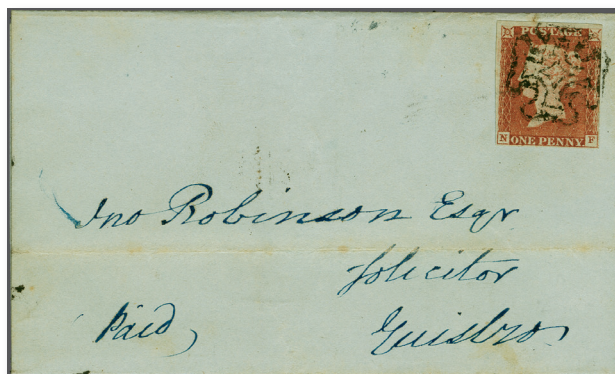 POSTAGE
N ONE PENNY F
Jno Robinson Esqr
Solicitor
Paid
Guisbro